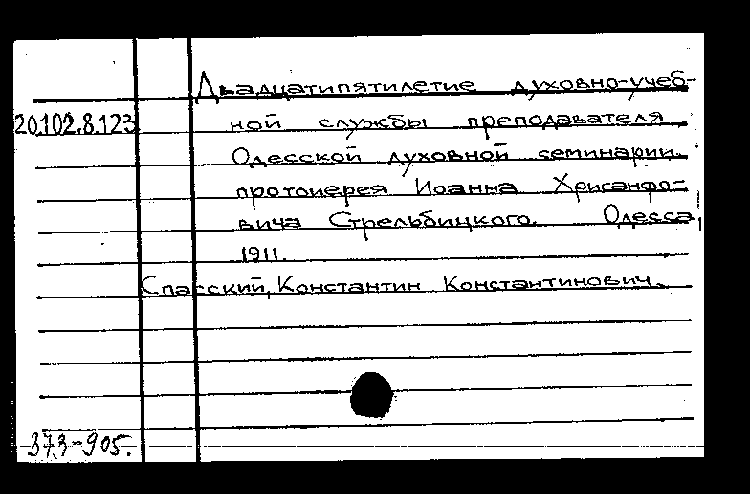 Двадцатипятилетие духовно-учеб-
20.102.8.123 ной службы преподавателя
Одесской духовной семинарии
протоиерея Иоанна Хрисанфо-
вича Стрельбицкого. Одесса,
1911.
Спасский, Константин Константинович.
373-905.